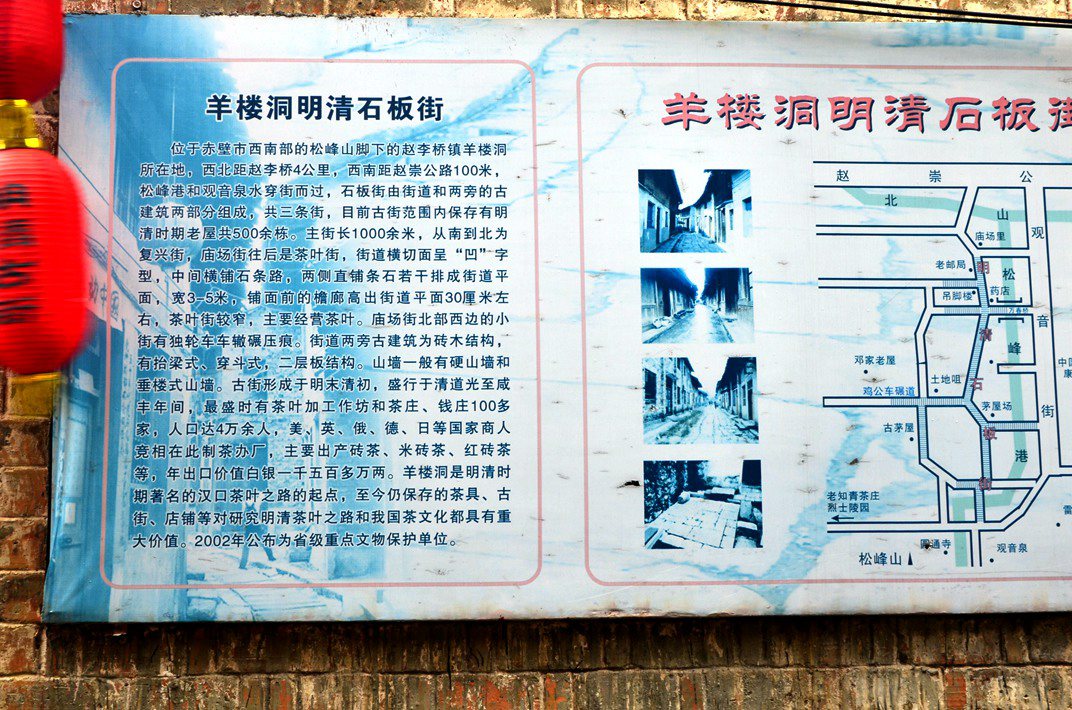 羊楼洞明清石板街
位于赤壁市西南部的松峰山脚下的赵李桥镇羊楼洞
所在地，西北距赵李桥4公里，西南距赵崇公路100米，
松峰港和观音泉水穿街而过，石板街由街道和两旁的古
建筑两部分组成，共三条街，目前古街范围内保存有明
清时期老屋共500余栋。主街长1000余米，从南到北为
复兴街，庙场街往后是茶叶街，街道横切面呈“凹”字
型，中间横铺石条路，两侧直铺条石若干排成街道平
面，宽3-5米，铺面前的檐廊高出街道平面30厘米左
右，茶叶街较窄，主要经营茶叶。庙场街北部西边的小
街有独轮车车辙碾压痕。街道两旁古建筑为砖木结构，
有抬梁式、穿斗式，二层板结构。山墙一般有硬山墙和
垂楼式山墙。古街形成于明末清初，盛行于清道光至咸
丰年间，最盛时有茶叶加工作坊和茶庄、钱庄100多
家，人口达4万余人，美、英、俄、德、日等国家商人
竞相在此制茶办厂，主要出产砖茶、米砖茶、红砖茶
等，年出口价值白银一千五百多万两。羊楼洞是明清时
期著名的汉口茶叶之路的起点，至今仍保存的茶具、古
街、店铺等对研究明清茶叶之路和我国茶文化都具有重
大价值。2002年公布为省级重点文物保护单位。
羊楼洞明清石板街
赵 崇 公
北 山 观
庙场里
老邮局 明 松
吊脚楼 药店
清 音
峰
邓家老屋
土地咀 石
鸡公车碾道
茅屋场 街
古茅屋 板
港
街
老知青茶庄
烈士陵园
圆通寺 观音泉
松峰山